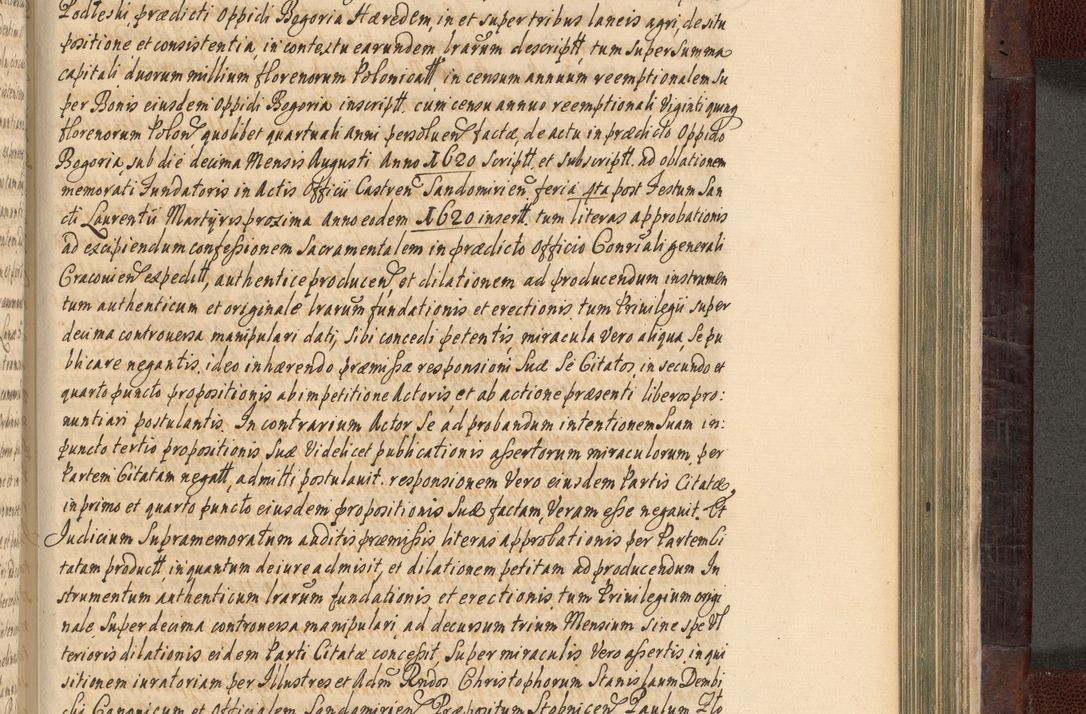 Podleski, prædicti Oppidi Bogoria Hæredem, in et super tribus laneis agri, de situ
positione et consistentia, in contextu earundem lrarum descriptt, tum super summa
capitali duorum millium florenorum Polonicatt, in censum annuum reemptionalem Su
per Bonis eiusdem Oppidi Bogoria inscriptt. cum censu annuo reemptionali Viginti quinq
florenorum Polon quolibet quartuali Anni persoluen factæ, de actu in prædicto Oppido
Bogoria, sub die decima Mensis Augusti Anno 1620 Scriptt et subscriptt. ad oblationem
memorati Fundatoris in Actis Officii Castren Sandomirien feria 4ta post Festum San
cti Laurentii Martyris proxima Anno eodem 1620 insertt. tum literas approbationis
ad excipiendum confessionem Sacramentalem in prædicto Officio Consriali generali
Cracouien expeditt, authentice producen, et dilationem ad producendum instrumen
tum authenticum et originale lrarum fundationis et erectionis, tum Priuilegii super
decima controuersa manipulari dati, Sibi concedi petentis, miracula Vero aliqua, Se pu
blicare negantis, ideo inhærendo præmissæ responsioni Suæ Se Citatos, in secundo et
quarto puncto propositionis ab impetitione Actoris, et ab actione præsenti liberos pro:
nuntiari postulantis. In contrarium Actor Se ad probandum intentionem Suam in:
puncto tertio propositionis Suæ Videlicet publicationis assertorum miraculorum, per
Partem Citatam negatt, admitti postulauit. responsionem Vero eiusdem Partis Citatæ,
in primo et quarto puncto eiusdem propositionis Suæ factam, Veram esse negauit. Et
Judicium Supramemoratum auditis præmissis literas approbationis per Partem Ci
tatam productt, inquantum de iure admisit, et dilationem petitam ad producendum In
strumentum authenticum lrarum fundationis et erectionis, tum Priuilegium origi
nale, Super decima controuersa manipulari, ad decursum trium Mensium Sine spe Vl
terioris dilationis eidem Parti Citatæ concessit, Super miraculis Vero assertis, inqui
sitionem iuratoriam per Illustres et Adm Rndos Christophorum Stanislaum Dembi
ski Canonicum et Officialem Sandomirien Præpositum Stobnicen Paulum Flo